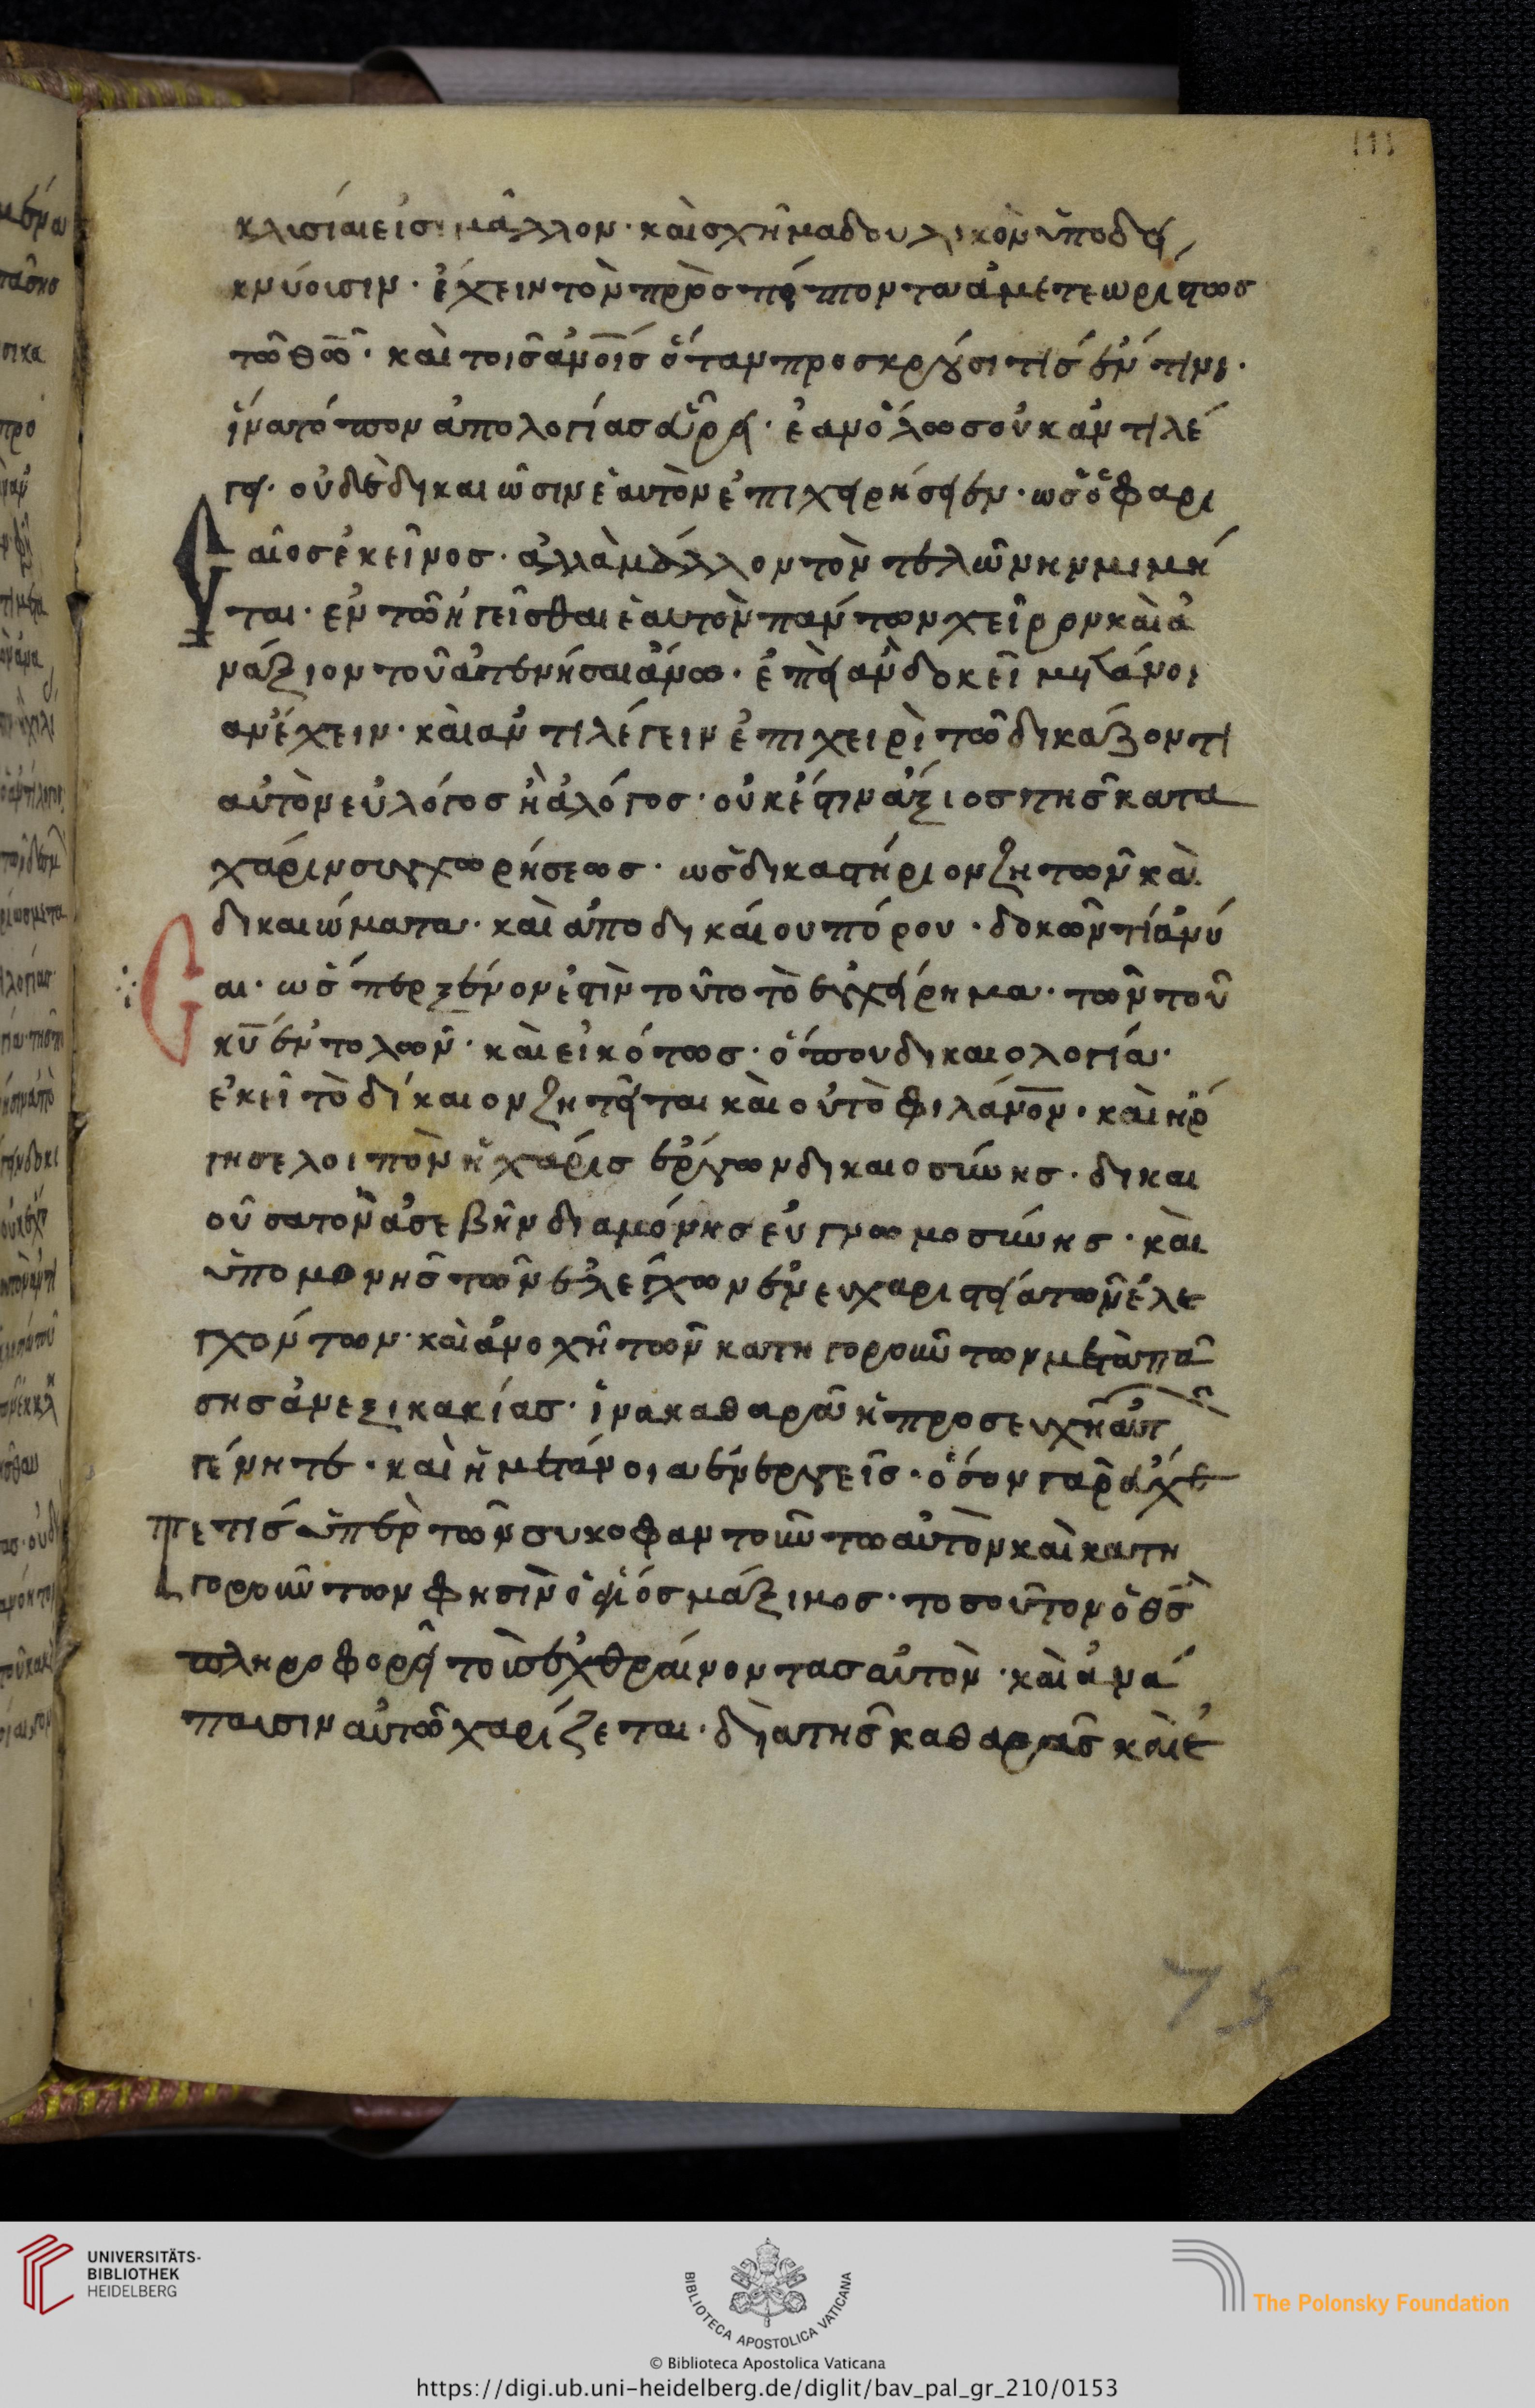 111
κλισίαι εἰσὶ μᾶλλον· καὶ σχῆμα δουλικὸν ὑποδει
κνύουσιν· ἔχειν τὸν προσπίπτοντα ἀμετεωρίστως
τῶ θῶ· καὶ τοῖς ἀνοις ὅταν προσκρούσι τίς ἔν τινι·
ἵνα τόπον ἀπολογίας εὕρει· ἐὰν ὅλως οὐκ ἀντιλέ
γει· οὐδὲ δικαιῶσιν ἑαυτὸν ἐπιχειρήσειεν· ὡς ὁ φαρι
σαῖος ἐκεῖνος· ἀλλὰ μᾶλλον τὸν τελώνην μιμή
ται· ἐν τῶ ἡγεῖσθαι ἑαυτὸν πάντων χεῖρον καὶ ἀ
νάξιον τοῦ ἀτενῆσαι ἄνω· ἐπεὶ ἂν δοκεῖ μετάνοι
αν ἔχειν· καὶ ἀντιλέγειν ἐπιχειρὶ τῶ δικάζοντι
αὐτὸν εὐλόγος ἢ ἀλόγος· οὐκ ἔστιν ἄξιος τῆς κατα
χάριν συγχωρήσεως· ὡς δικαστήριον ζητῶν καὶ
δικαιώματα· καὶ ἀπο δικαίου πόρου· δοκῶν τί ἀνύ
σαι· ὡς περ ξένον ἐστὶν τοῦτο τὸ ἐγχείρημα· τῶν τοῦ
κυ ἐντολῶν· καὶ εἰκότως· ὅπου δικαιολογία·
ἐκεῖ τὸ δίκαιον ζητεῖται καὶ οὐ τὸ φιλάνον· καὶ ἤρ
γησε λοιπὸν ἡ χάρις ἔργων δικαιοσύνης· δικαι
οῦσα τὸν ἀσεβῆν διαμόνης εὐγνωμοσύνης· καὶ
ὑπομονῆς τῶν ἐλέγχων ἐν ευχαριστεία τῶν ἐλε
γχόντων· καὶ ἀνοχῆ τῶν κατηγορούντων μετὰ πά
σης ἀνεξικακίας· ἵνα καθαρᾶ ἡ προσευχὴ αὐτ
γένητε· καὶ ἡ μετάνοια ἐνεργεῖς· ὅσον γὰρ εὔχε
τε τίς ὑπὲρ τῶν συκοφαντούντω αὐτὸν καὶ κατη
γορούντων φησὶν ὁ ἅγιός μάξιμος· τοσοῦτον ὁ θς
πληροφορεῖ τοὺς ἐχθραίνοντας αὐτὸν· καὶ ἀνά
παυσιν αὐτῶ χαρίζεται· διὰ τῆς καθαρᾶς καὶ ἐ
75
UNIVERSITÄTS-
BIBLIOTHEK
HEIDELBERG
BIBLIOTECA APOSTOLICA VATICANA
The Polonsky Foundation
© Biblioteca Apostolica Vaticana
https://digi.ub.uni-heidelberg.de/diglit/bav_pal_gr_210/0153